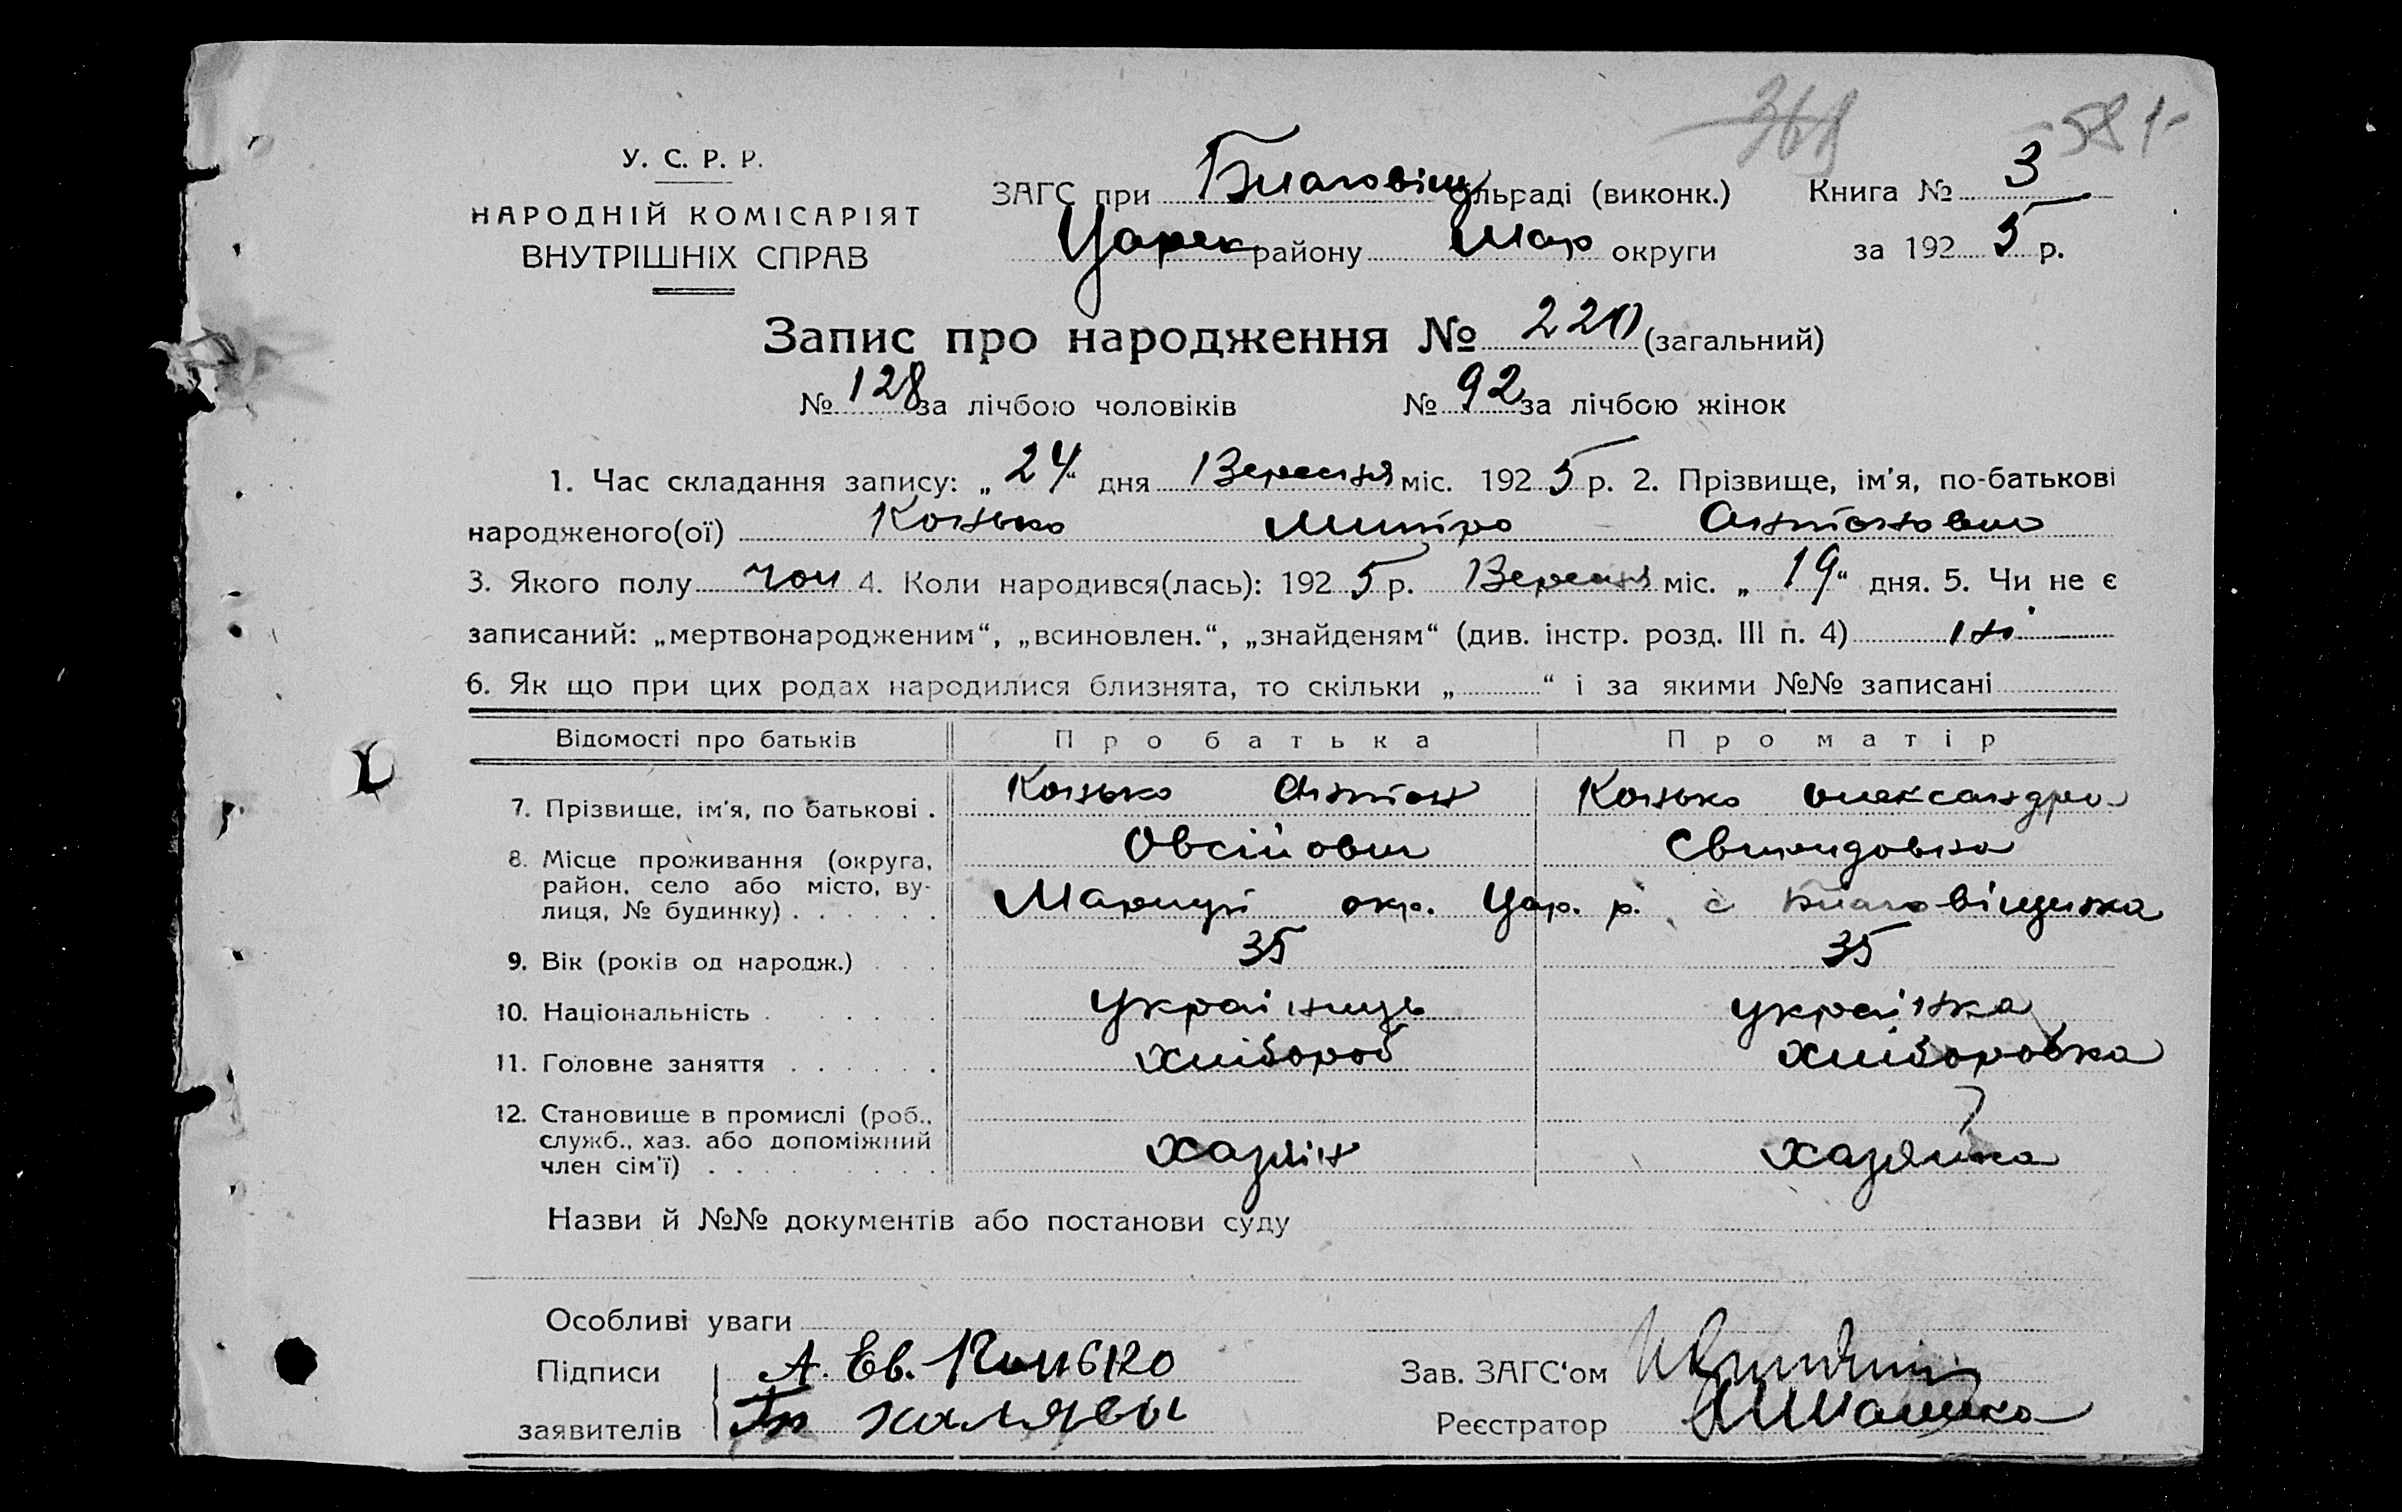 368 581
У. С. Р. Р.
НАРОДНІЙ КОМІСАРІЯТ
ВНУТРІШНІХ СПРАВ
ЗАГС при Благовіщ сільраді (виконк.) Книга № 3
Царек району Мар округи за 1925 р.
Запис про народження № 220 (загальний)
№ 128 за лічбою чоловіків № 92 за лічбою жінок
1. Час складання запису: „24“ дня Вересня міс. 1925 р. 2. Прізвище, ім'я, по-батькові
народженого(ої) Конько Митро Антонович
3. Якого полу чол 4. Коли народився(лась): 1925 р. Вересня міс. „19“ дня. 5. Чи не є
записаний: „мертвонародженим“, „всиновлен.“, „знайденям“ (див. інстр. розд. III п. 4) ні
6. Як що при цих родах народилися близнята, то скільки „ “ і за якими №№ записані
Відомості про батьків Про батька Про матір
7. Прізвище, ім'я, по батькові . Конько Антон Овсійович Конько Олександра
8. Місце проживання (округа, район, село або місто, вулиця, № будинку) . . . . . . Маріуп окр. Цар. р. с Благовіщенка
9. Вік (років од народж.) . . . 35 35
10. Національність . . . . . . Українець українка
11. Головне заняття . . . . . . хлібороб хліборобка
12. Становище в промислі (роб., служб., хаз. або допоміжний член сім'ї) . . . . . . . . . хазяїн хазяйка
Назви й №№ документів або постанови суду
Особливі уваги
Підписи заявителів А. Ев. Конько
Зав. ЗАГС'ом
Реєстратор